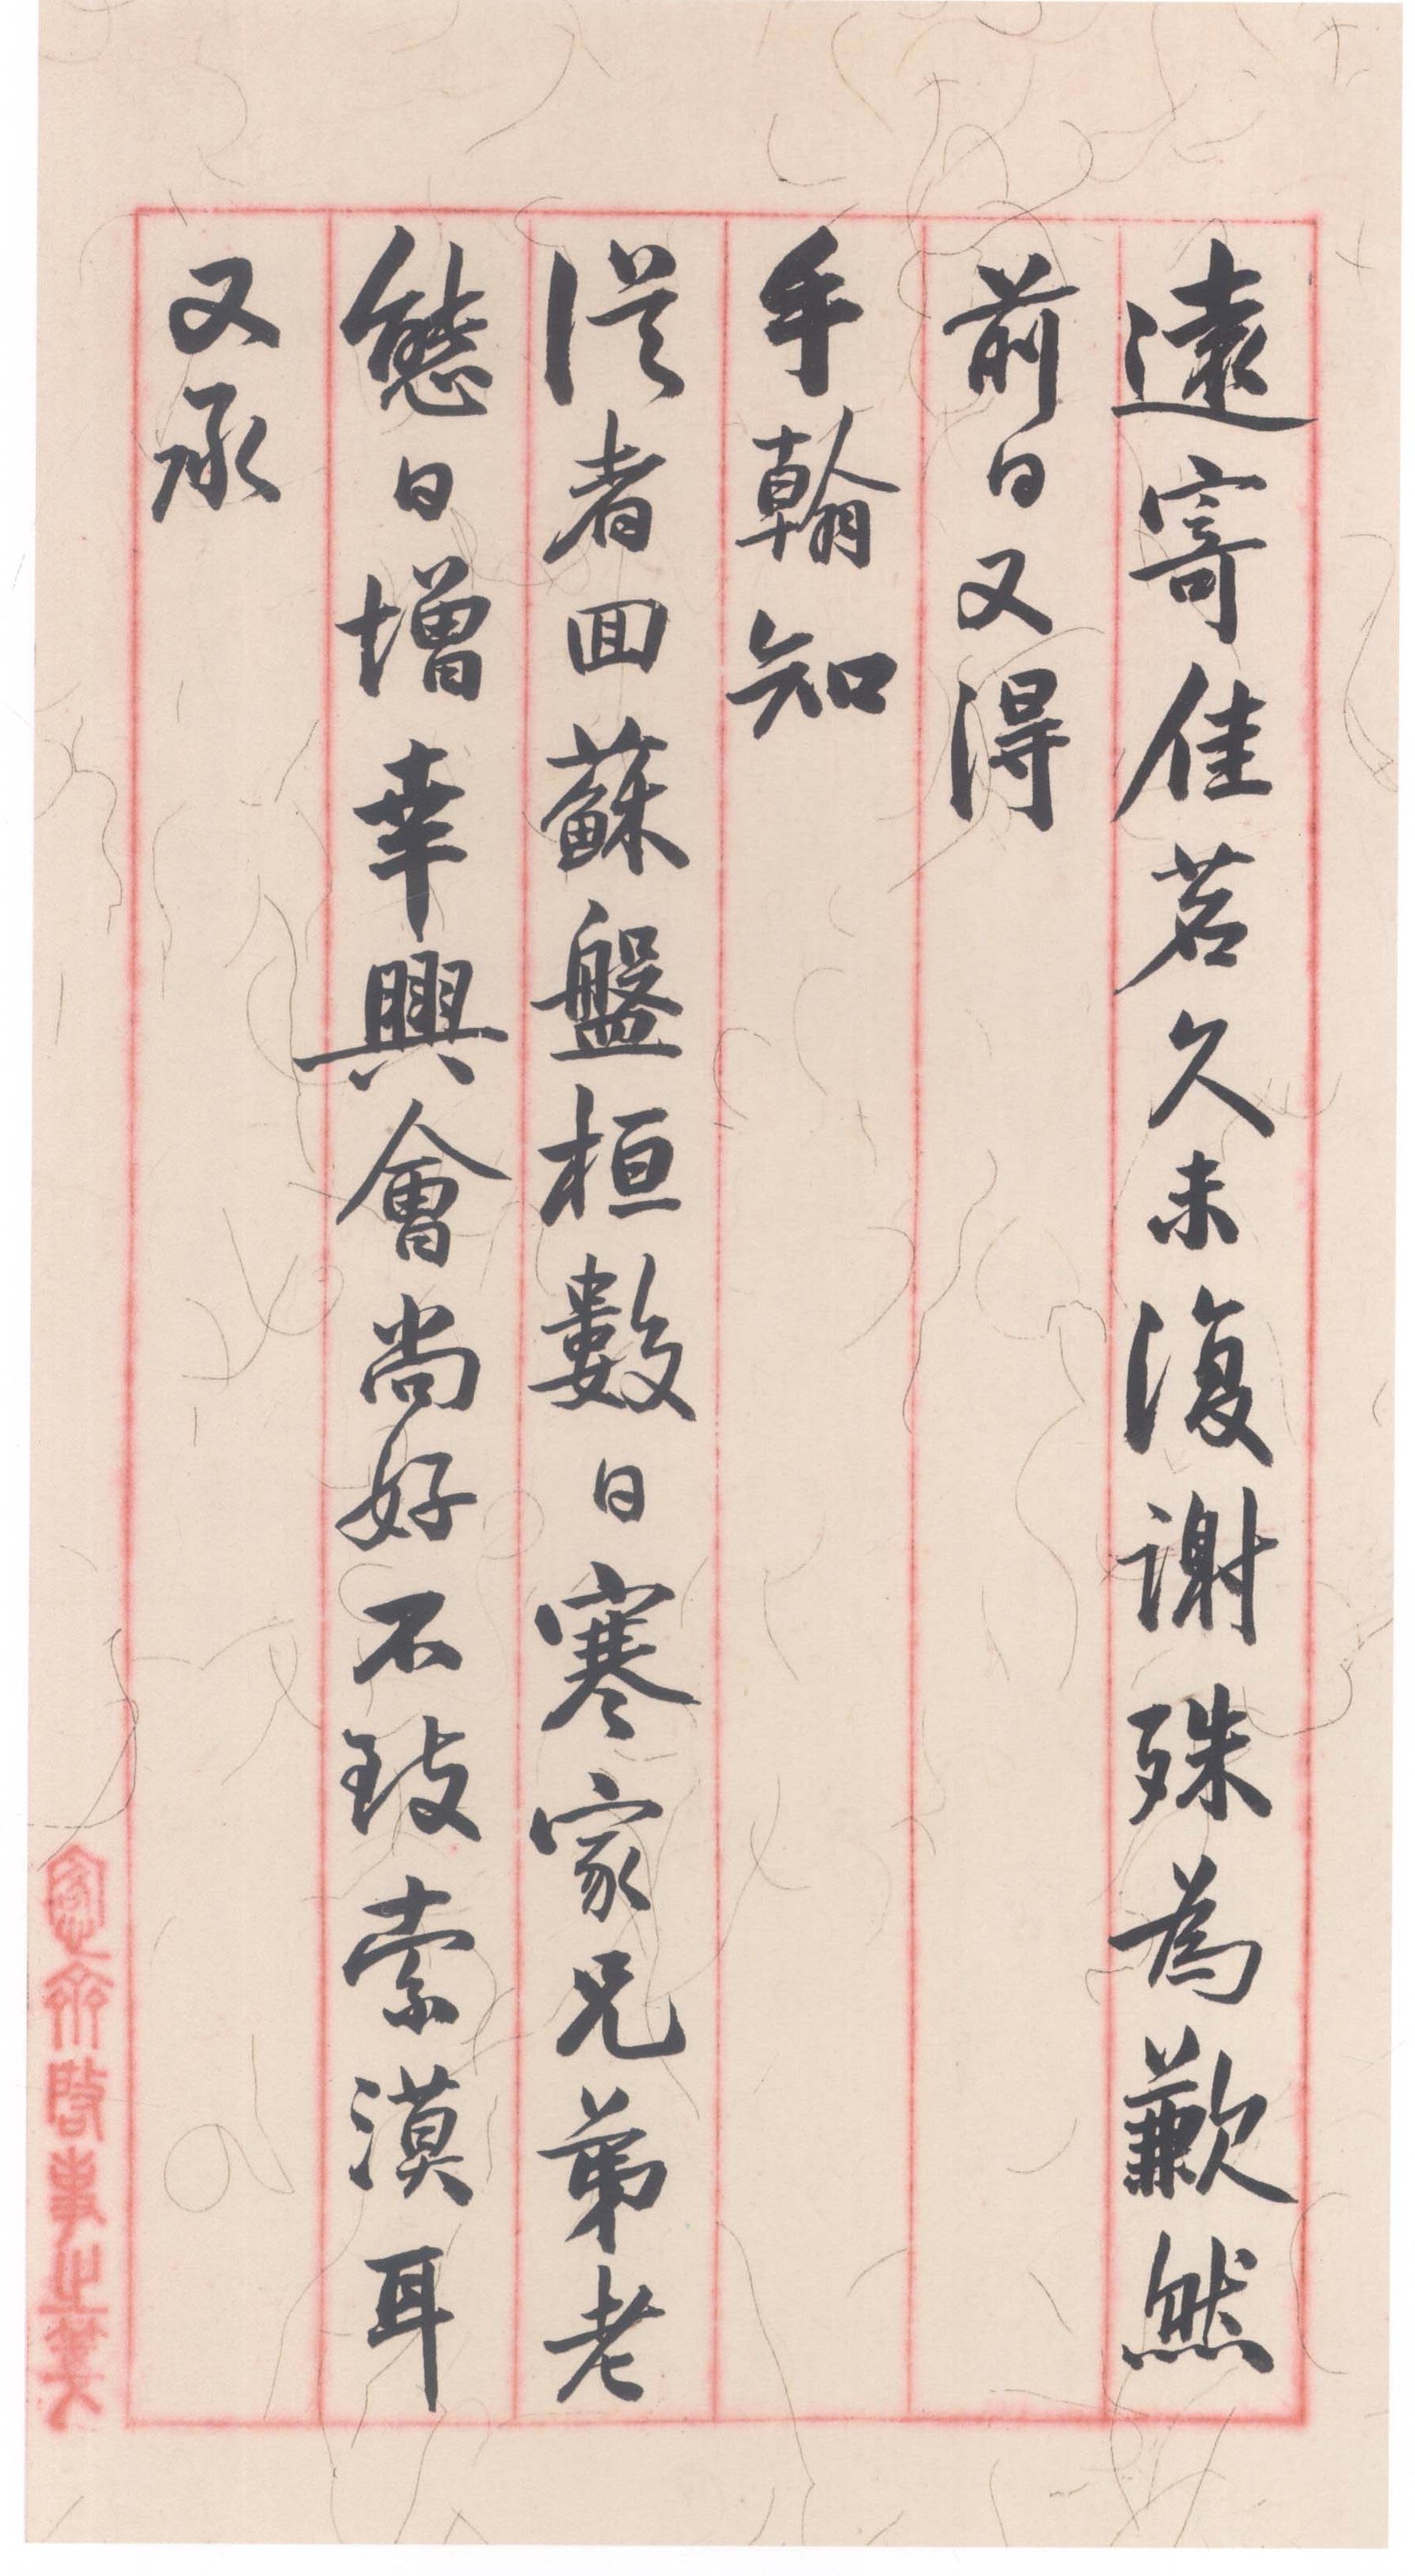 遠寄佳茗久未復謝殊為歉然
前日又得
手翰知
從者回蘇盤桓數日寒家兄弟老
態日增幸興會尚好不致索漠耳
又承